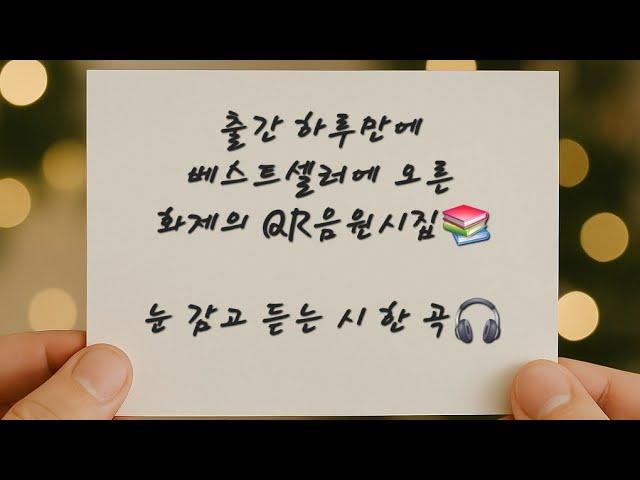 출간 하루만에
베스트셀러에 오른
화제의 QR음원시집📚
눈 감고 듣는 시 한 곡🎧